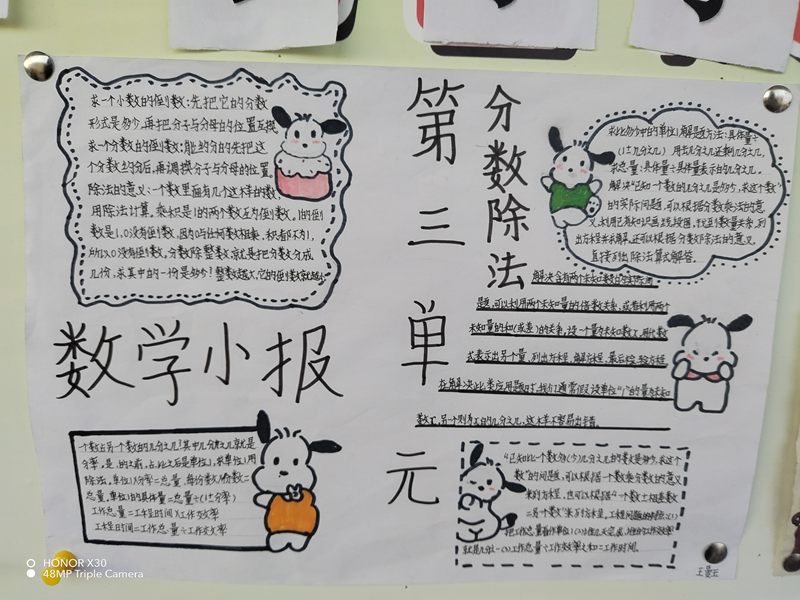 求一个小数的倒数:先把它的分数
形式是多少,再把分子与分母的位置互换
求一个分数的倒数:能约分的先把这
个分数约分后,再调换分子与分母的位置。
除法的意义:一个数里面有几个这样的数,
用除法计算。乘积是1的两个数互为倒数,1的倒
数是1,0没有倒数,因为0与任何数相乘,积都不为1,
所以0没有倒数。分数除整数就是把分数分成
几份,求其中的一份是多少!整数越大,它的倒数就越小
数学小报
一个数占另一个数的几分之几!其中几分之几就是
分率。是,的之前,占,比之后是单位1,求单位1用
除法。单位1×分率=总量
总量,单位1的具体量=总量÷(1±分率)
工作总量=工作时间×工作效率
工作时间=工作总量÷工作效率
第三单元
分数除法
求比多少中的单位1解题方法:具体量÷
(1±几分之几) 用去几分之几还剩几分之几,
求总量:具体量÷具体量表示的几分之几。
解决"已知一个数的几分之几是多少,求这个数"
的实际问题,可以根据分数乘法的意
义,利用已有知识画线段图,找到数量关系,列
出方程来求解。还可以根据分数除法的意义
直接列出除法算式解答。
解决含有两个未知数的实际问
题,可以利用两个未知量的倍数关系,或者利用两个
未知量的和(或差)的关系,设一个量为未知数x,用代数
式表示出另个量,列出方程,解方程,最后检验方程
在解决此类应用题时,我们通常假设单位"1"的量为未知
数x,另一个则为x的几分之几,这样不容易出错
"已知比一个数多(少)几分之几的数是多少,求这个
数"的问题,可以根据一个数乘分数的意义
来列方程,也可以根据"一个数±相差数
=另一个数"来列方程。工程问题的特点:(1)
把工作总量看作单位1(2)
就是几分之一(3)工作总量÷工作效率之和=工作时间。
HONOR X30
48MP Triple Camera